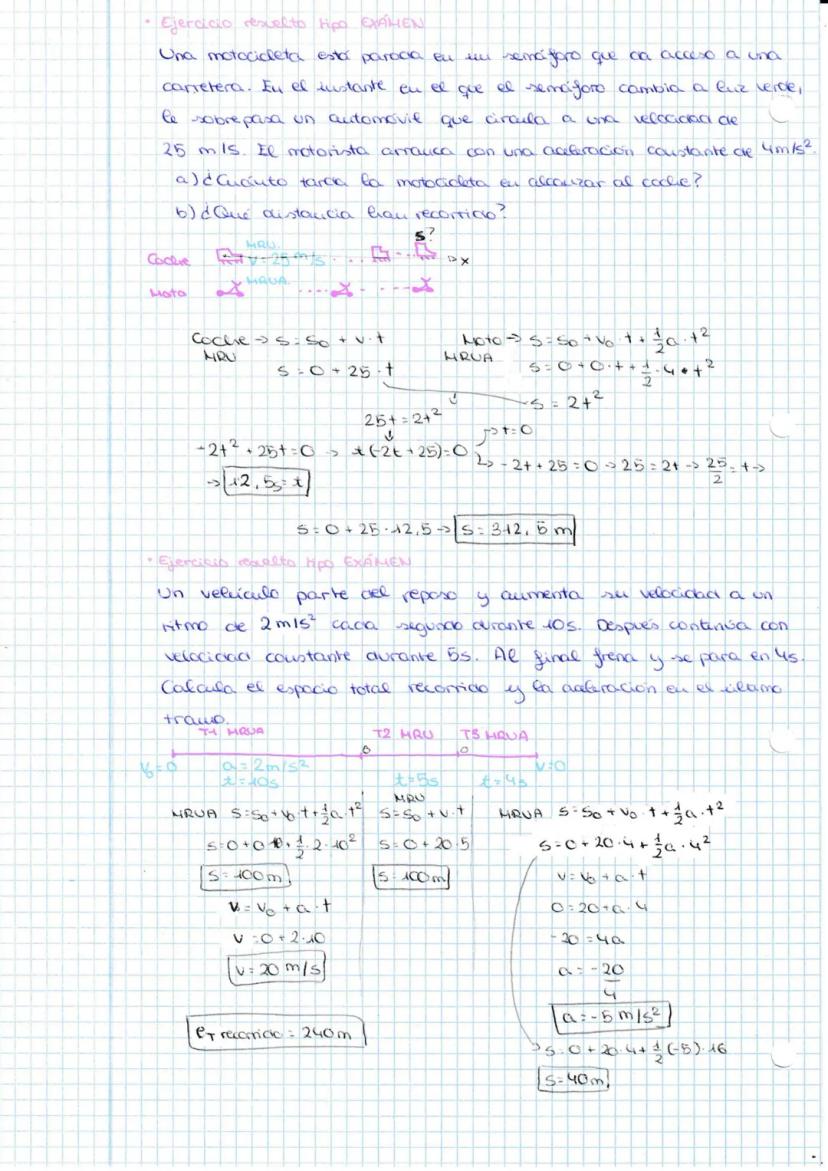 · Ejercicio resuelto tipo EXÁMEN
Una motocicleta está parada en un semáforo que da acceso a una
carretera. En el instante en el que el semáforo cambia a luz verde,
le sobrepasa un automóvil que circula a una velocidad de
25 m/s. El motorista arranca con una aceleración constante de 4m/s².
a) ¿Cuánto tarda la motocicleta en alcanzar al coche?
b) ¿Qué distancia han recorrido?
S?
MRU.
Coche V=25 m/s x
Moto MRUA.
Coche → S = S₀ + v·t Moto → S = S₀ + V₀·t + 1/2 a·t²
MRU MRUA
S = 0 + 25·t S = 0 + 0·t + 1/2·4·t²
S = 2t²
25t = 2t²
→ t=0
-2t² + 25t = 0 → t(-2t + 25) = 0 → -2t + 25 = 0 → 25 = 2t → 25/2 = t →
→ 12,5s = t
S = 0 + 25·12,5 → S = 312,5 m
· Ejercicio resuelto tipo EXÁMEN
Un vehículo parte del reposo y aumenta su velocidad a un
ritmo de 2m/s² cada segundo durante 10s. Después continúa con
velocidad constante durante 5s. Al final frena y se para en 4s.
Calcula el espacio total recorrido y la aceleración en el último
tramo.
T1 MRUA T2 MRU T3 MRUA
V₀=0 a=2m/s² V=0
t=10s t=5s t=4s
MRU
MRUA S=S₀+V₀·t+1/2a·t² S=S₀+v·t MRUA S=S₀+V₀·t+1/2a·t²
S=0+0·10+1/2·2·10² S=0+20·5 S=0+20·4+1/2a·4²
S=100m S=100m V=V₀+a·t
V=V₀+a·t 0=20+a·4
V=0+2·10 -20=4a
V=20 m/s a=-20/4
a=-5 m/s²
eT recorrido = 240m
S=0+20·4+1/2(-5)·16
S=40m